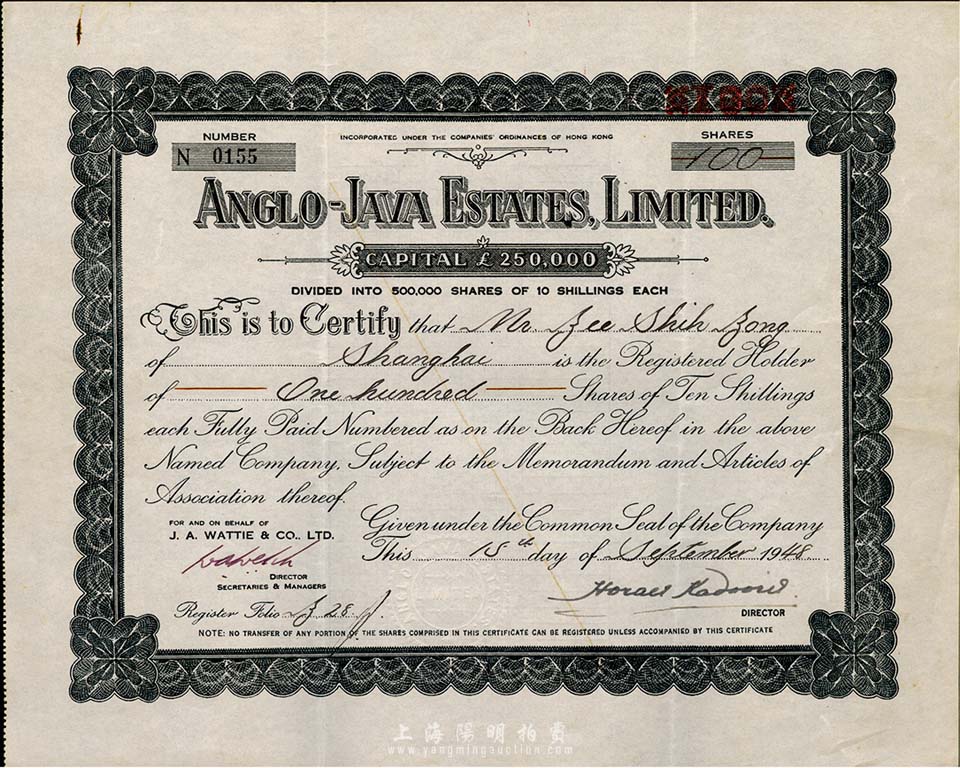 NUMBER
N 0155
INCORPORATED UNDER THE COMPANIES' ORDINANCES OF HONG KONG
SHARES
100
ANGLO-JAVA ESTATES, LIMITED.
CAPITAL £ 250,000
DIVIDED INTO 500,000 SHARES OF 10 SHILLINGS EACH
This is to Certify that Mr. Zee Shih Zong
of Shanghai is the Registered Holder
of One hundred Shares of Ten Shillings
each Fully Paid Numbered as on the Back Hereof in the above
Named Company, Subject to the Memorandum and Articles of
Association thereof.
Given under the Common Seal of the Company
This 15th day of September 1948
FOR AND ON BEHALF OF
J. A. WATTIE & CO., LTD.
DIRECTOR
SECRETARIES & MANAGERS
Horace Kadoorie
DIRECTOR
Register Folio Z 28
NOTE: NO TRANSFER OF ANY PORTION OF THE SHARES COMPRISED IN THIS CERTIFICATE CAN BE REGISTERED UNLESS ACCOMPANIED BY THIS CERTIFICATE
上海陽明拍賣
www.yangmingauction.com